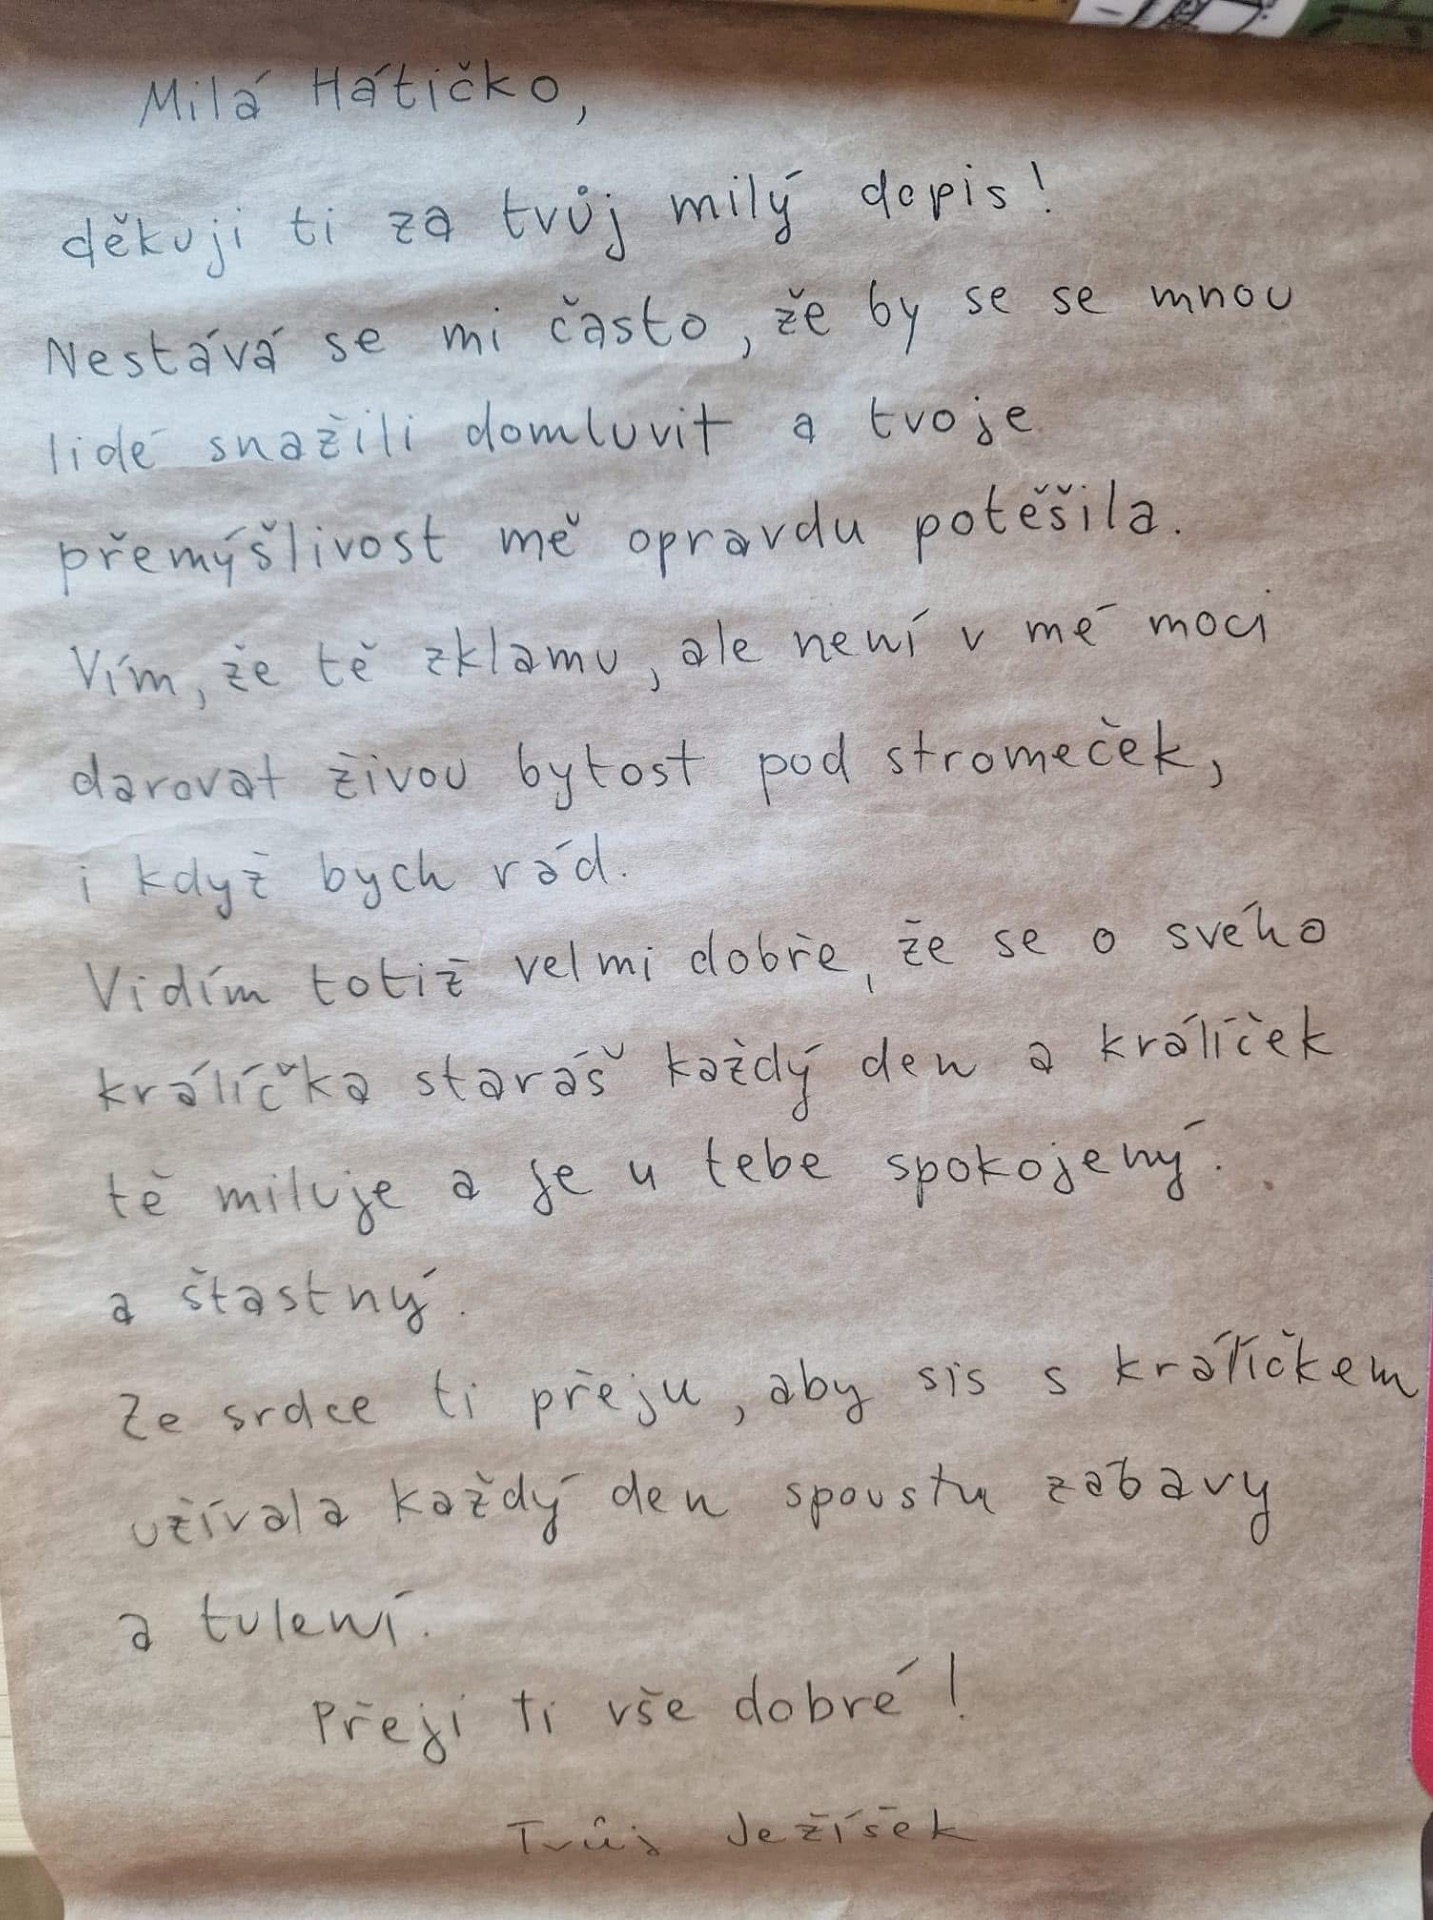 Milá Hátičko,
děkuji ti za tvůj milý dopis!
Nestává se mi často, že by se se mnou
lidé snažili domluvit a tvoje
přemýšlivost mě opravdu potěšila.
Vím, že tě zklamu, ale není v mé moci
darovat živou bytost pod stromeček,
i když bych rád.
Vidím totiž velmi dobře, že se o svého
králíčka staráš každý den a králíček
tě miluje a je u tebe spokojený.
a štastný.
Ze srdce ti přeju, aby sis s králíčkem
užívala každý den spoustu zábavy
a tulení.
Přeji ti vše dobré!
Tvůj Ježíšek